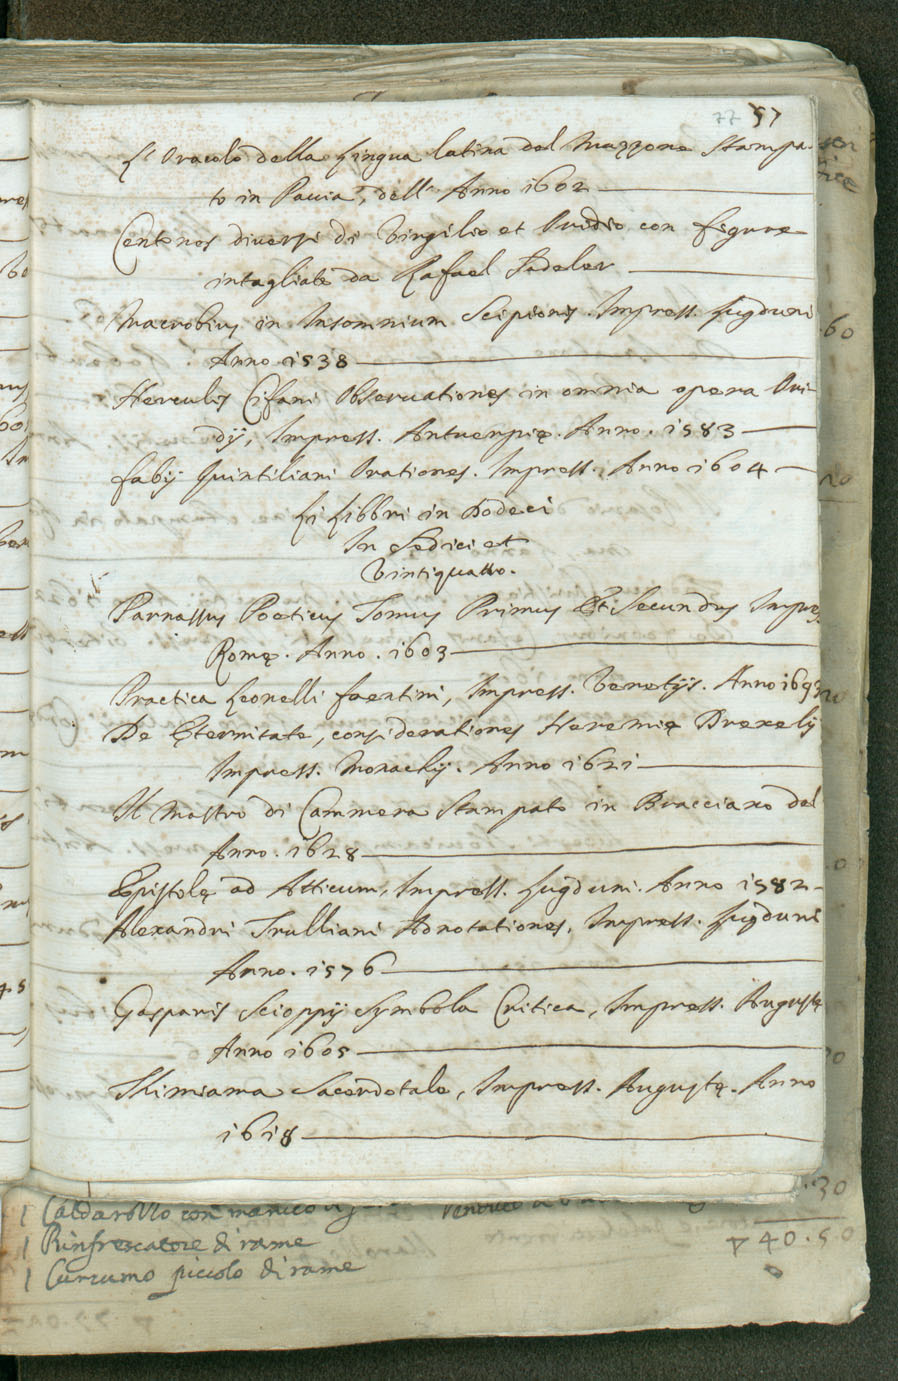 77 57
L'Oracolo della Lingua latina del Mazzone Stampa-
to in Pavia, dell'Anno 1602
Centones diversi di Virgilio et Ovidio con figure
intagliate da Rafael Sadeler
Macrobius in Insomnium Scipionis. Impress. Lugduni
Anno 1538
Herculis Cifani Observationes in omnia opera Ovi-
dij, Impress. Antuerpię. Anno. 1583
Fabij Quintiliani Orationes. Impress. Anno 1604
Li Libbri in Dodeci
In Sedici et
Vintiquatto.
Parnassus Poeticus Tomus Primus Et Secundus Impress
Romę. Anno. 1603
Practica Leonelli faentini, Impress. Venetijs. Anno
De Ęternitate, considerationes Heremię Drexelij
Impress. Monachij. Anno 1621
Il Mastro di Cammera Stampato in Bracciano del
Anno. 1628
Epistolę ad Atticum, Impress. Lugduni. Anno 1582
Alexandri Trulliani Adnotationes, Impress. Lugduni
Anno. 1576
Gasparis Scioppij Symbola Critica, Impress. Augustę
Anno 1605
Thimiama Sacerdotale, Impress. Augustę. Anno
1618
1 Caldarozzo con manico
1 Rinfrescatore di rame
1 Cucumo piccolo di rame
60
30
40.50